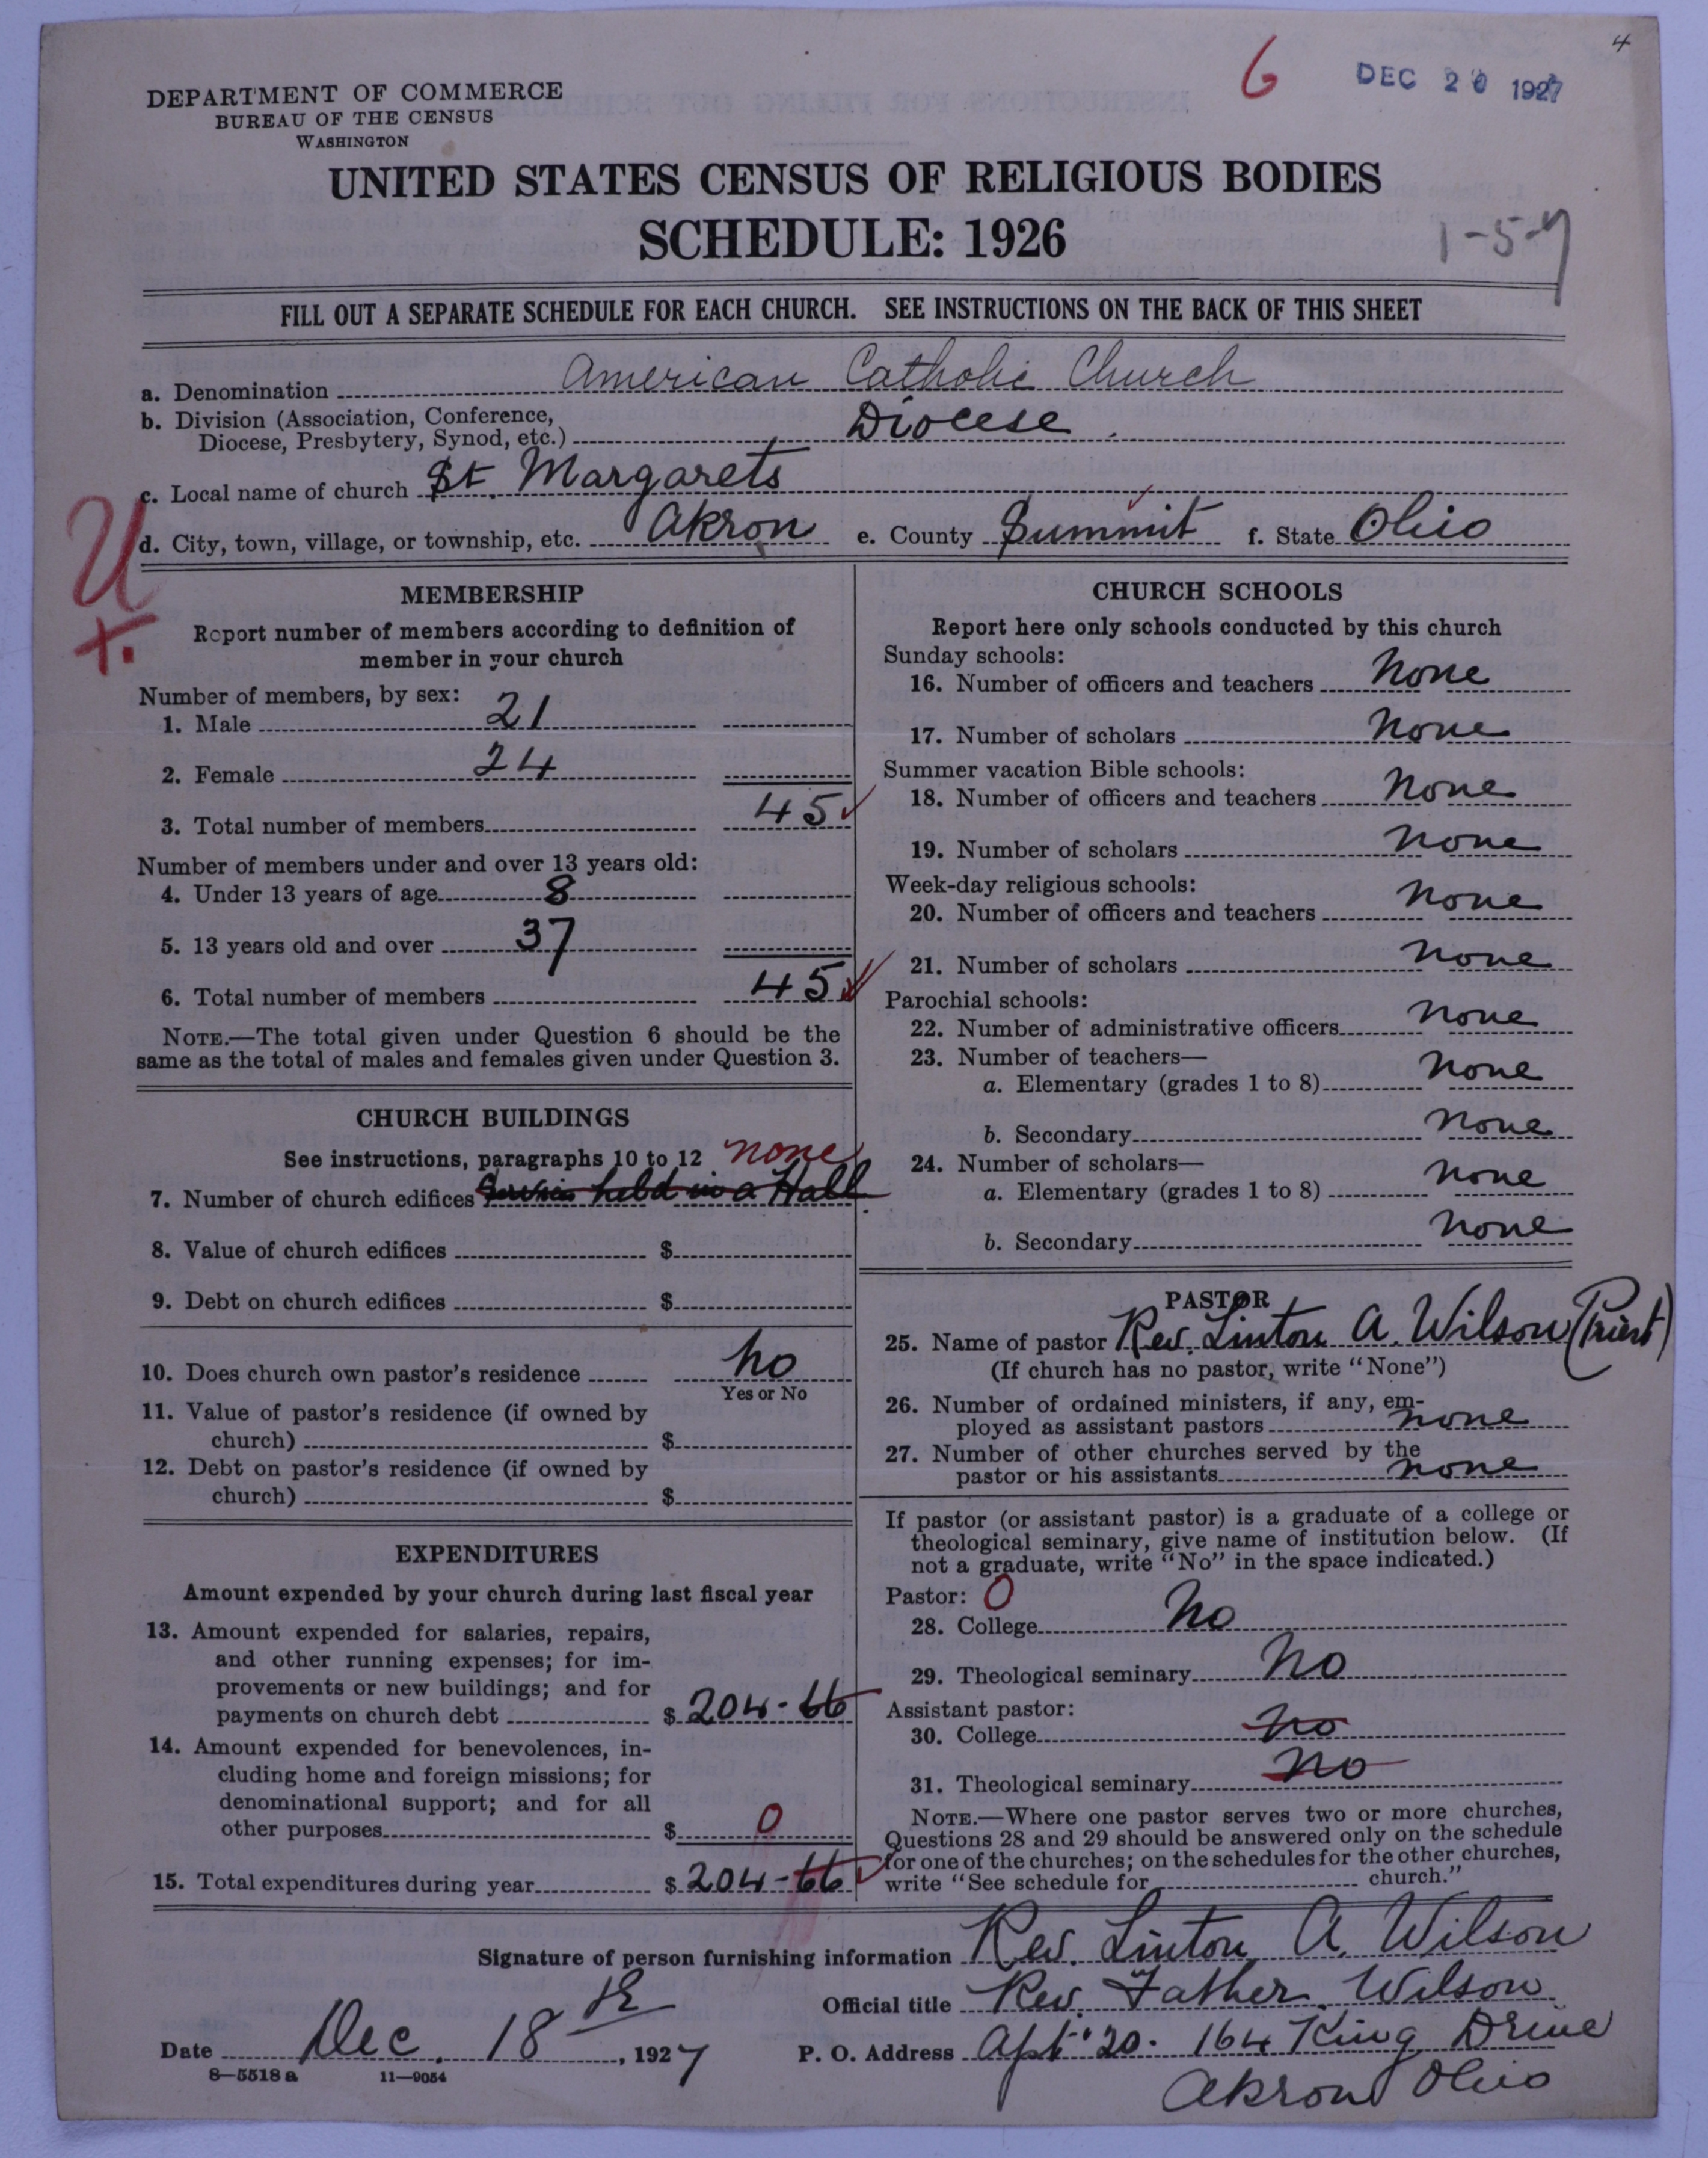 4
6
DEC 20 1927
DEPARTMENT OF COMMERCE
BUREAU OF THE CENSUS
WASHINGTON
UNITED STATES CENSUS OF RELIGIOUS BODIES
SCHEDULE: 1926
1-5-7
FILL OUT A SEPARATE SCHEDULE FOR EACH CHURCH. SEE INSTRUCTIONS ON THE BACK OF THIS SHEET
a. Denomination American Catholic Church
b. Division (Association, Conference,
Diocese, Presbytery, Synod, etc.) Diocese
c. Local name of church St. Margarets
d. City, town, village, or township, etc. Akron e. County Summit f. State Ohio
U
+.
MEMBERSHIP
Report number of members according to definition of
member in your church
Number of members, by sex:
1. Male 21
2. Female 24
3. Total number of members 45
Number of members under and over 13 years old:
4. Under 13 years of age 8
5. 13 years old and over 37
6. Total number of members 45
NOTE.—The total given under Question 6 should be the
same as the total of males and females given under Question 3.
CHURCH BUILDINGS
See instructions, paragraphs 10 to 12 none
7. Number of church edifices Service held in a Hall
8. Value of church edifices $
9. Debt on church edifices $
10. Does church own pastor's residence no
Yes or No
11. Value of pastor's residence (if owned by
church) $
12. Debt on pastor's residence (if owned by
church) $
EXPENDITURES
Amount expended by your church during last fiscal year
13. Amount expended for salaries, repairs,
and other running expenses; for im-
provements or new buildings; and for
payments on church debt $ 204-66
14. Amount expended for benevolences, in-
cluding home and foreign missions; for
denominational support; and for all
other purposes $ 0
15. Total expenditures during year $ 204-66
CHURCH SCHOOLS
Report here only schools conducted by this church
Sunday schools:
16. Number of officers and teachers None
17. Number of scholars None
Summer vacation Bible schools:
18. Number of officers and teachers None
19. Number of scholars None
Week-day religious schools:
20. Number of officers and teachers None
21. Number of scholars None
Parochial schools:
22. Number of administrative officers None
23. Number of teachers—
a. Elementary (grades 1 to 8) None
b. Secondary None
24. Number of scholars—
a. Elementary (grades 1 to 8) None
b. Secondary None
PASTOR
25. Name of pastor Rev. Linton A. Wilson (Priest)
(If church has no pastor, write "None")
26. Number of ordained ministers, if any, em-
ployed as assistant pastors none
27. Number of other churches served by the
pastor or his assistants none
If pastor (or assistant pastor) is a graduate of a college or
theological seminary, give name of institution below. (If
not a graduate, write "No" in the space indicated.)
Pastor: 0
28. College No
29. Theological seminary No
Assistant pastor:
30. College No
31. Theological seminary No
NOTE.—Where one pastor serves two or more churches,
Questions 28 and 29 should be answered only on the schedule
for one of the churches; on the schedules for the other churches,
write "See schedule for church."
Signature of person furnishing information Rev. Linton A. Wilson
Official title Rev. Father Wilson
Date Dec. 18th, 1927
P. O. Address Apt. 20. 164 King Drive
Akron Ohio
8—5518 a 11—9054